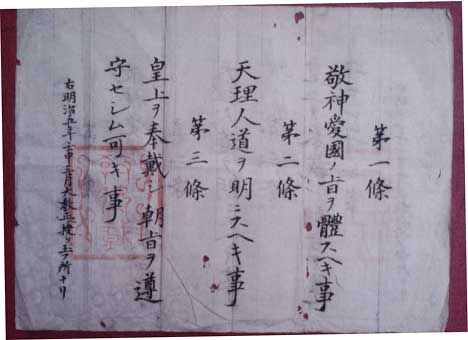 第一條
敬神愛國ノ旨ヲ體スヘキ事
第二條
天理人道ヲ明ニスヘキ事
第三條
皇上ヲ奉戴シ朝旨ヲ遵
守セシム可キ事
右明治五年壬申三月大教正授ル所ナリ